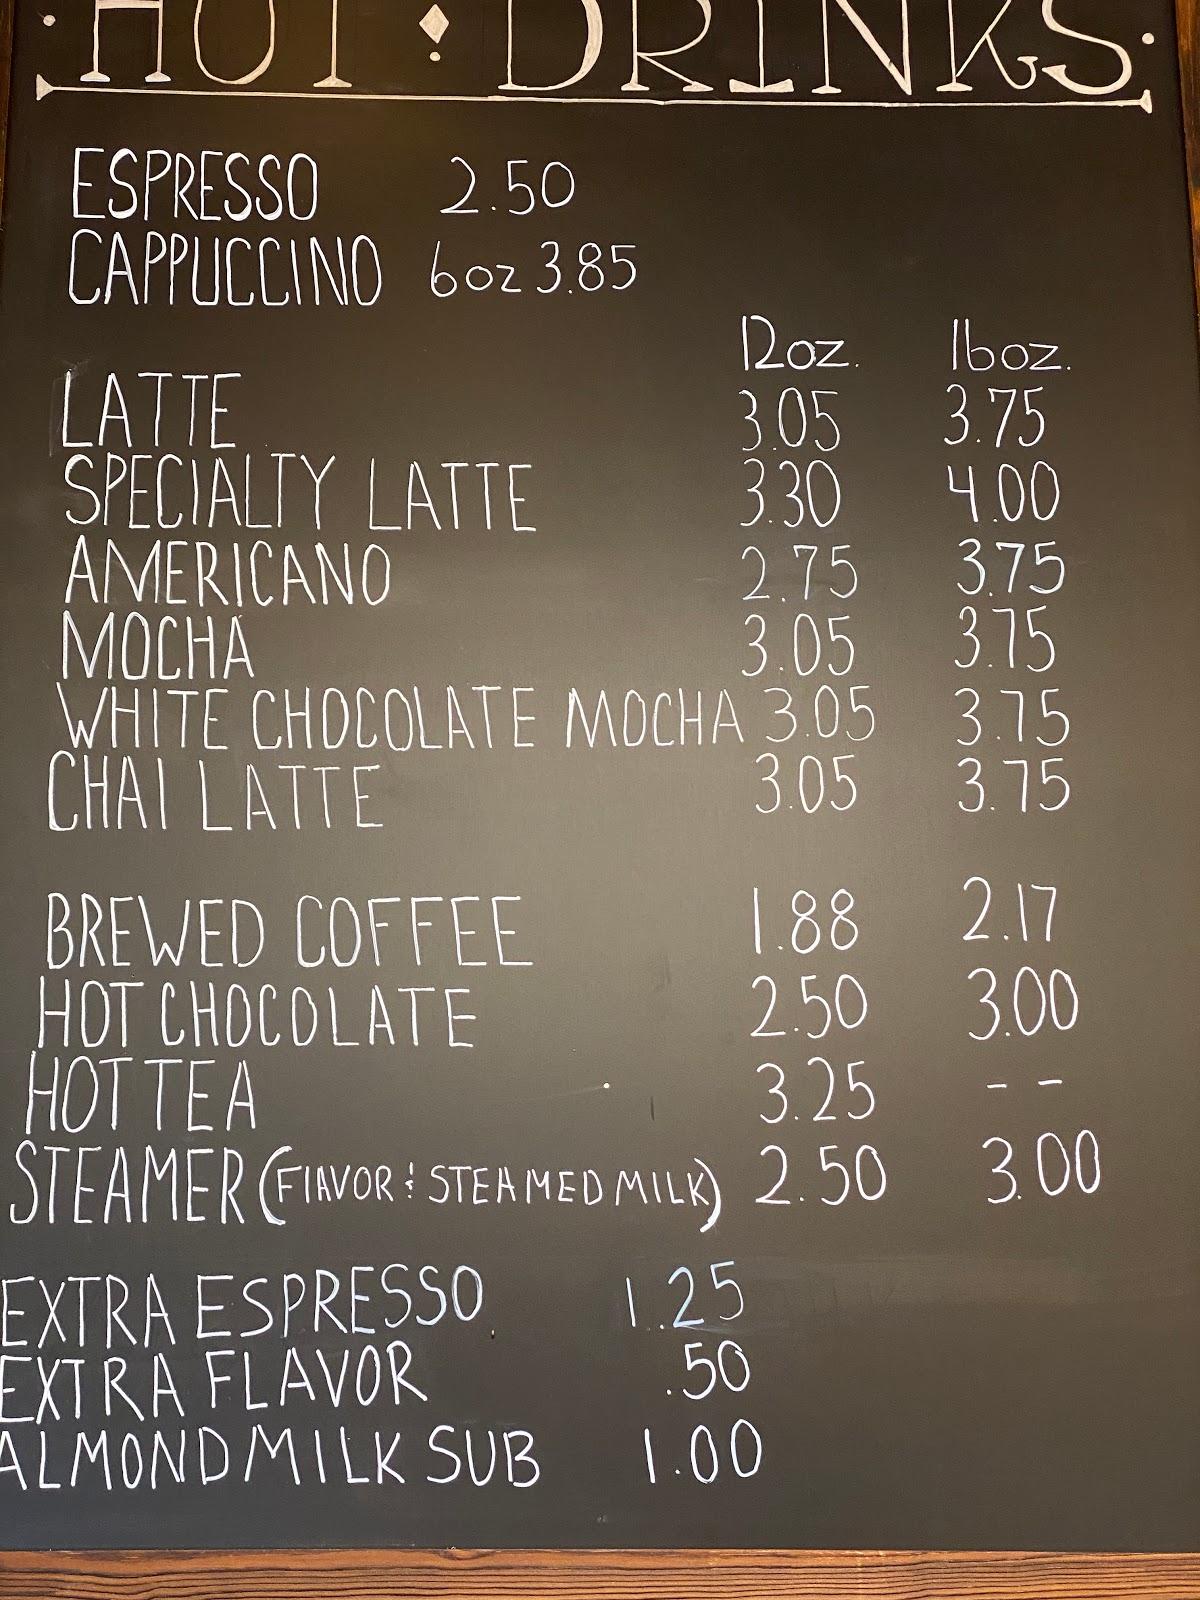 HOT DRINKS
ESPRESSO 2.50
CAPPUCCINO 6oz 3.85
12oz. 16oz.
LATTE 3.05 3.75
SPECIALTY LATTE 3.30 4.00
AMERICANO 2.75 3.75
MOCHA 3.05 3.75
WHITE CHOCOLATE MOCHA 3.05 3.75
CHAI LATTE 3.05 3.75
BREWED COFFEE 1.88 2.17
HOT CHOCOLATE 2.50 3.00
HOT TEA 3.25 --
STEAMER (FLAVOR & STEAMED MILK) 2.50 3.00
EXTRA ESPRESSO 1.25
EXTRA FLAVOR .50
ALMOND MILK SUB 1.00